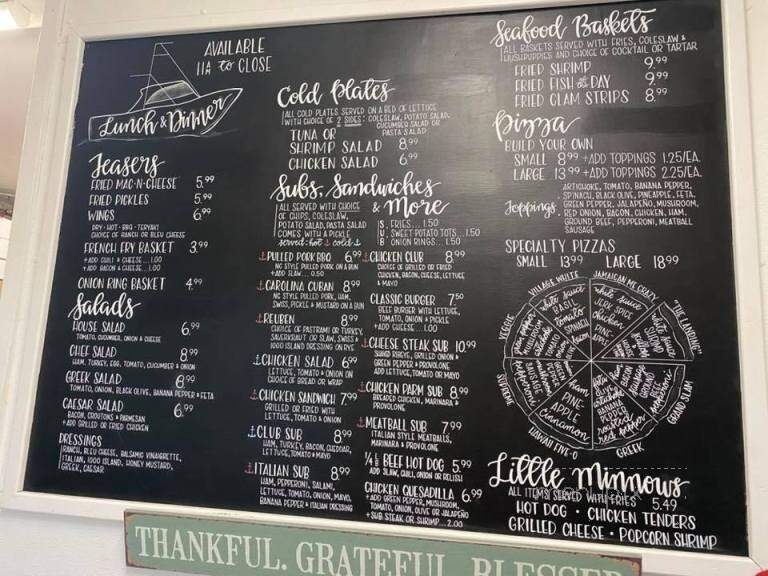 AVAILABLE
11A to CLOSE
Lunch & Dinner
Teasers
FRIED MAC-N-CHEESE 5.99
FRIED PICKLES 5.99
WINGS 6.99
DRY · HOT · BBQ · TERIYAKI
CHOICE OF RANCH OR BLEU CHEESE
FRENCH FRY BASKET 3.99
+ ADD CHILI & CHEESE...1.00
+ ADD BACON & CHEESE...1.00
ONION RING BASKET 4.99
Salads
HOUSE SALAD 6.99
TOMATO, CUCUMBER, ONION & CHEESE
CHEF SALAD 8.99
HAM, TURKEY, EGG, TOMATO, CUCUMBER & ONION
GREEK SALAD 8.99
TOMATO, ONION, BLACK OLIVE, BANANA PEPPER & FETA
CAESAR SALAD 6.99
BACON, CROUTONS & PARMESAN
+ ADD GRILLED OR FRIED CHICKEN
DRESSINGS
RANCH, BLEU CHEESE, BALSAMIC VINAIGRETTE,
ITALIAN, 1000 ISLAND, HONEY MUSTARD,
GREEK, CAESAR
Cold Plates
ALL COLD PLATES SERVED ON A BED OF LETTUCE
WITH CHOICE OF 2 SIDES: COLESLAW, POTATO SALAD,
CUCUMBER SALAD OR
PASTA SALAD
TUNA OR
SHRIMP SALAD 8.99
CHICKEN SALAD 6.99
Subs, Sandwiches
& More
ALL SERVED WITH CHOICE
OF CHIPS, COLESLAW,
POTATO SALAD, PASTA SALAD
COMES WITH A PICKLE
served hot cold
SUB
FRIES... 1.50
SWEET POTATO TOTS...1.50
ONION RINGS... 1.50
PULLED PORK BBQ 6.99
NC STYLE PULLED PORK ON A BUN
+ ADD SLAW... 0.50
CAROLINA CUBAN 8.99
NC STYLE PULLED PORK, HAM,
SWISS, PICKLE & MUSTARD ON A BUN
REUBEN 8.99
CHOICE OF PASTRAMI OR TURKEY,
SAUERKRAUT OR SLAW, SWISS &
1000 ISLAND DRESSING ON RYE
CHICKEN SALAD 6.99
LETTUCE, TOMATO & ONION ON
CHOICE OF BREAD OR WRAP
CHICKEN SANDWICH 7.99
GRILLED OR FRIED WITH
LETTUCE, TOMATO & ONION
CLUB SUB 8.99
HAM, TURKEY, BACON, CHEDDAR,
LETTUCE, TOMATO & MAYO
ITALIAN SUB 8.99
HAM, PEPPERONI, SALAMI,
LETTUCE, TOMATO, ONION, MAYO,
BANANA PEPPER & ITALIAN DRESSING
CHICKEN CLUB 8.99
CHOICE OF GRILLED OR FRIED
CHICKEN, BACON, CHEESE, LETTUCE
& MAYO
CLASSIC BURGER 7.50
BEEF BURGER WITH LETTUCE,
TOMATO, ONION & PICKLE
+ ADD CHEESE... 1.00
CHEESE STEAK SUB 10.99
SHAVED RIBEYE, GRILLED ONION &
GREEN PEPPER & PROVOLONE
ADD LETTUCE, TOMATO OR MAYO
CHICKEN PARM SUB 8.99
BREADED CHICKEN, MARINARA &
PROVOLONE
MEATBALL SUB 7.99
ITALIAN STYLE MEATBALLS,
MARINARA & PROVOLONE
1/4 lb BEEF HOT DOG 5.99
ADD SLAW, CHILI, ONION OR RELISH
CHICKEN QUESADILLA 6.99
+ ADD GREEN PEPPER, MUSHROOM,
TOMATO, ONION, OLIVE OR JALAPEÑO
+ SUB STEAK OR SHRIMP...2.00
Seafood Baskets
ALL BASKETS SERVED WITH FRIES, COLESLAW &
HUSHPUPPIES AND CHOICE OF COCKTAIL OR TARTAR
FRIED SHRIMP 9.99
FRIED FISH of the DAY 9.99
FRIED CLAM STRIPS 8.99
Pizza
BUILD YOUR OWN
SMALL 8.99 + ADD TOPPINGS 1.25/EA.
LARGE 13.99 + ADD TOPPINGS 2.25/EA.
Toppings:
ARTICHOKE, TOMATO, BANANA PEPPER,
SPINACH, BLACK OLIVE, PINEAPPLE, FETA,
GREEN PEPPER, JALAPEÑO, MUSHROOM,
RED ONION, BACON, CHICKEN, HAM,
GROUND BEEF, PEPPERONI, MEATBALL
SAUSAGE
SPECIALTY PIZZAS
SMALL 13.99 LARGE 18.99
VILLAGE WHITE
white sauce
BASIL
tomato
SPINACH
JAMAICAN ME CRAZY
white sauce
JERK SPICE
chicken
PINE-
APPLE
"THE LANDING"
white sauce
SHRIMP
GRAND SLAM
GREEK
HAWAII FIVE-O
ham
PINE-
APPLE
cinnamon
VEGGIE
Little Minnows
ALL ITEMS SERVED WITH FRIES 5.49
HOT DOG · CHICKEN TENDERS
GRILLED CHEESE · POPCORN SHRIMP
THANKFUL. GRATEFUL. BLESSED